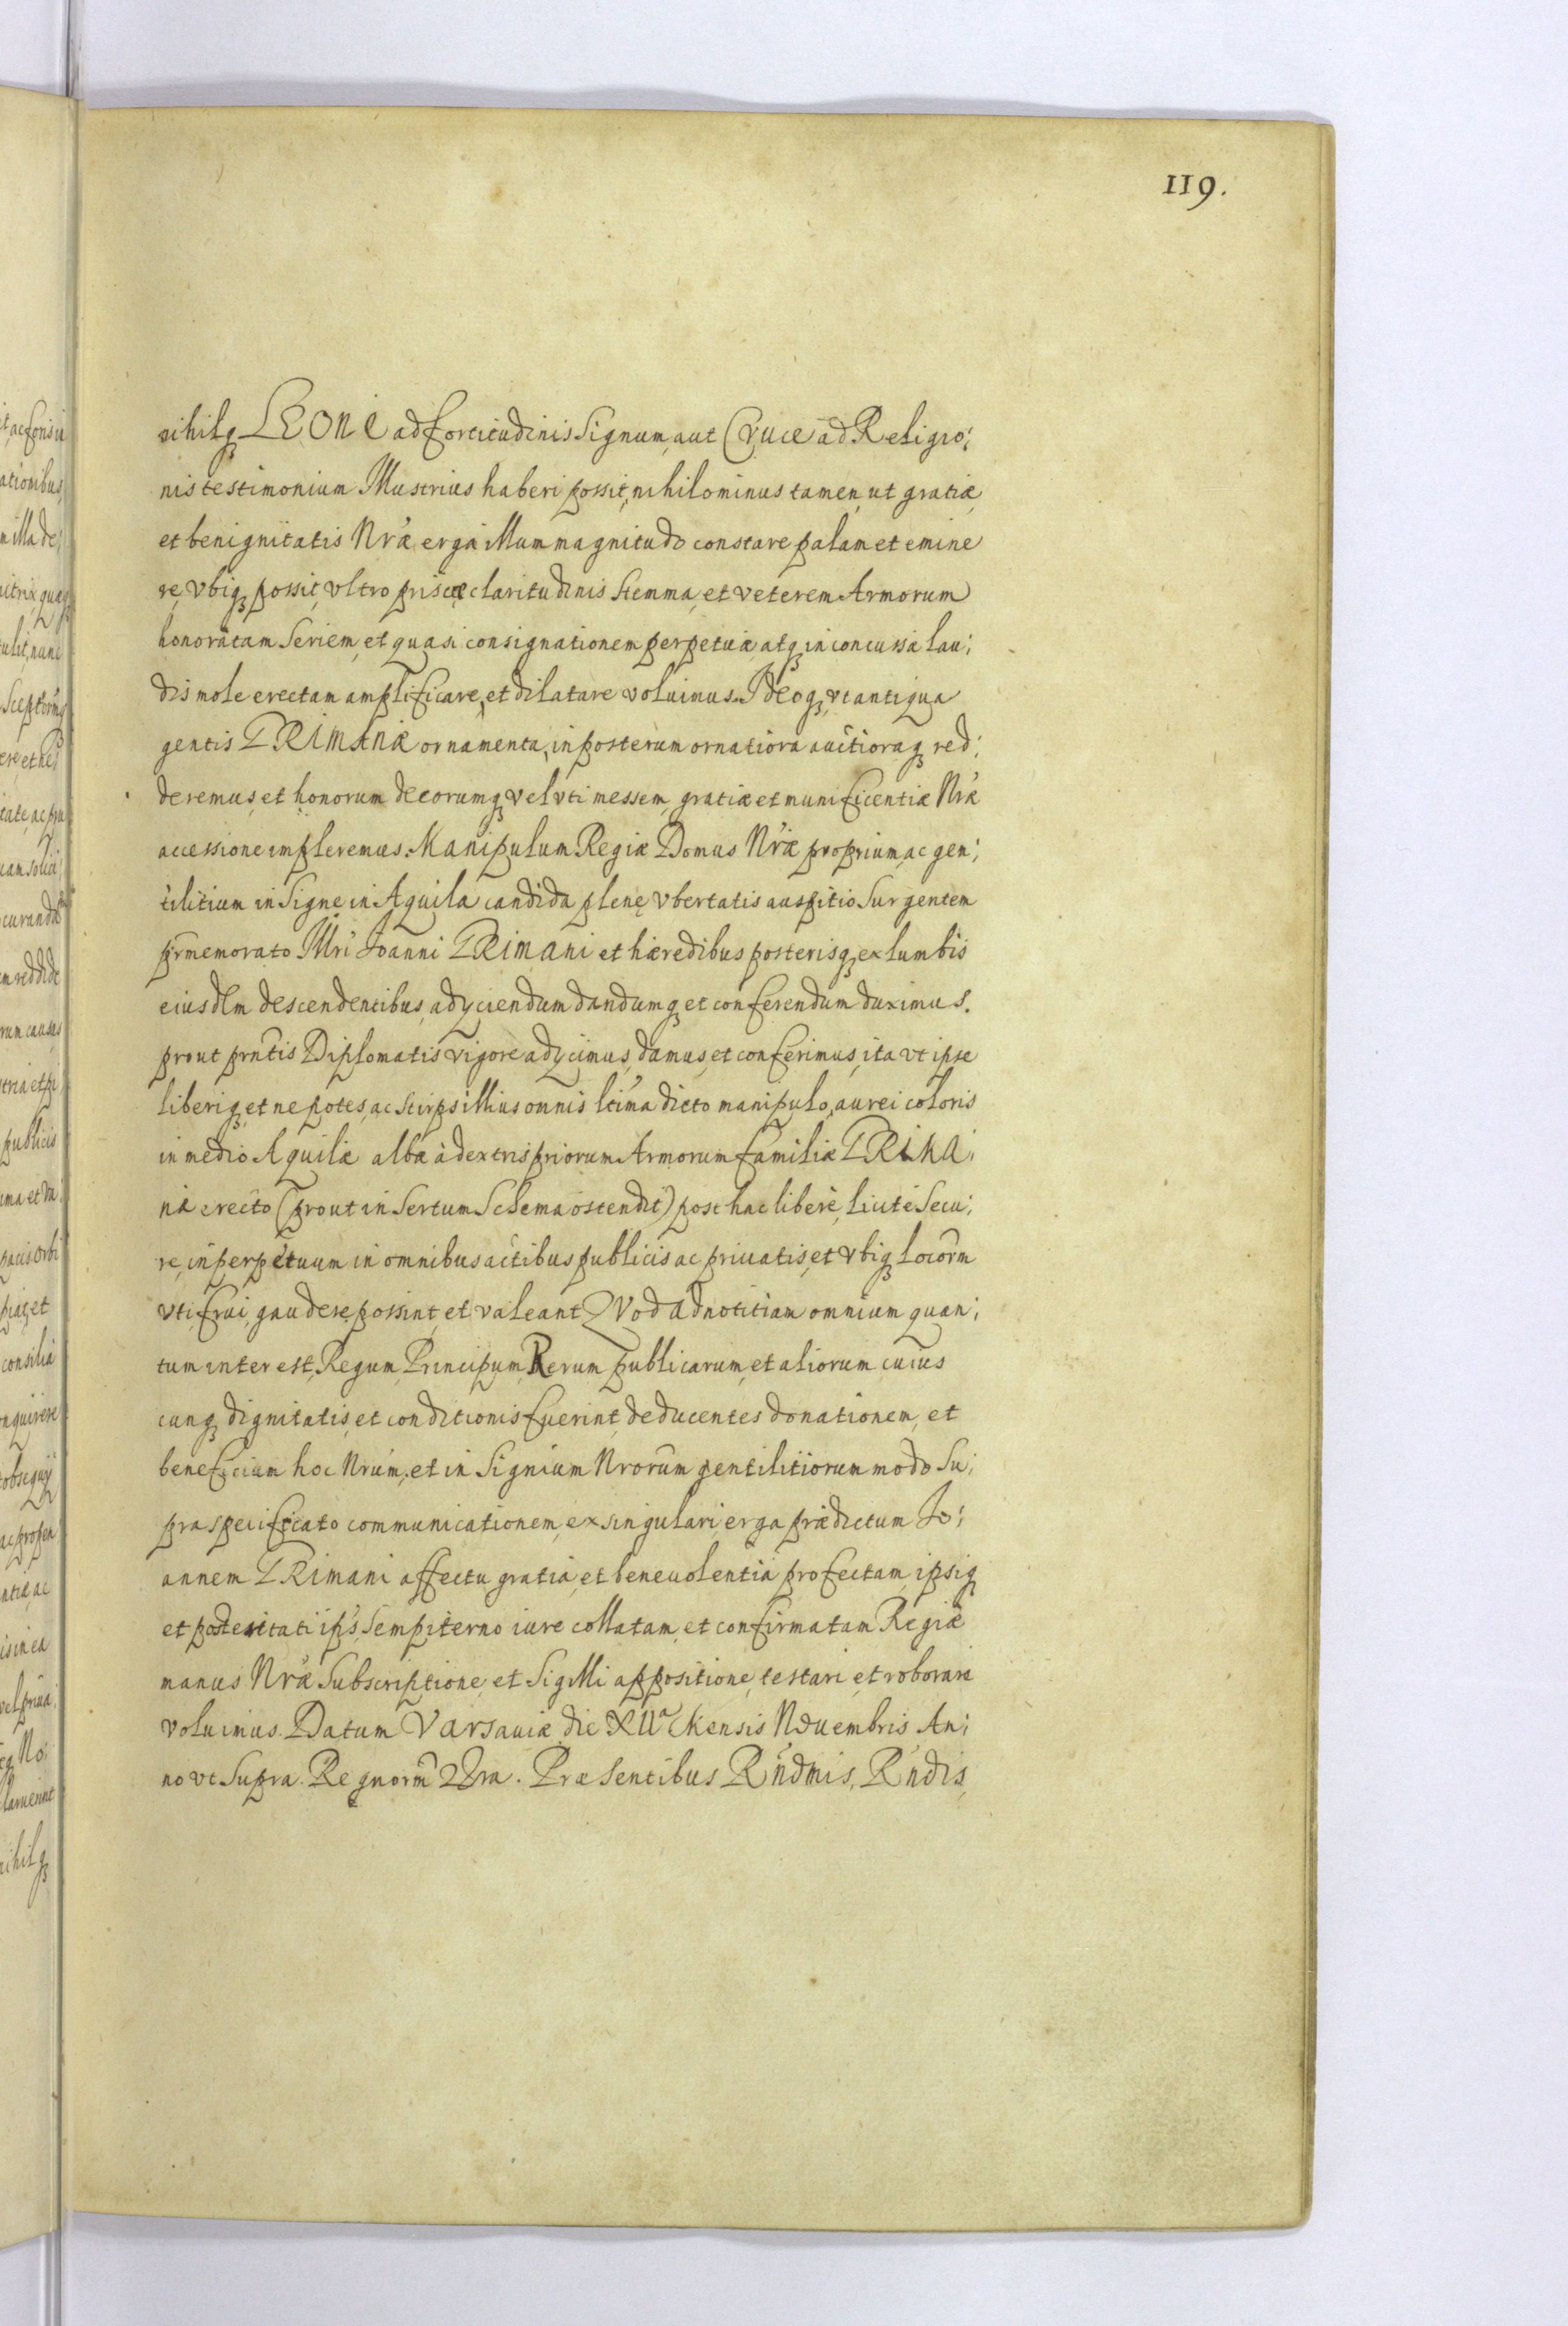 119.
nihilq₃ LEONE ad fortitudinis Signum, aut CruCe ad Religio;
nis testimonium Illustrius haberi possit, nihilominus tamen, ut gratiæ,
et benignitatis Nræ erga illum magnitudo constare palam et emine
re, Vbiq₃ possit, vltro priscæ claritudinis Stemma, et veterem Armorum
honoratam Seriem, et quasi consignationem perpetuæ, atq₃ inconcussa lau;
dis mole erectam amplificare, et dilatare voluimus. Ideoq₃, vt antiqua
gentis PRIMANÆ ornamenta, in posterum ornatiora auctioraq₃ red;
deremus, et honorum decorumq₃ velvti messem, gratiæ et munificentiæ Nræ
accessione impleremus. Manipulum Regiæ Domus Nræ proprium, ac gen;
tilitium inSigne in Aquila candida plenę vbertatis auspitio Surgentem
prmemorato Illri Joanni PRIMANI et hæredibus posterisq₃ ex lumbis
eiusdlm descendentibus, adyciendum dandumq₃ et conferendum duximus.
prout prntis Diplomatis vigore adycimus, damus, et conferimus, ita vt ipse
liberiq₃, et nepotes, ac Stirps illius omnis ltima dicto manipulo, aurei coloris
in medio Aquilæ albæ à dextris priorum Armorum familiæ PRIMA;
næ erecto (prout inSertum Schema ostendit) post hac liberè, licitè Secu;
re, in perpetuum in omnibus actibus publicis ac priuatis, et vbiq₃ locorm
vti, frui, gaudere, possint, et valeant QVod ad notitiam omnium quan;
tum interest, Regum, Principum, Rerum publicarum, et aliorum cuius
cunq₃ dignitatis, et conditionis fuerint, deducentes donationem, et
beneficium hoc Nrum, et inSignium Nrorum gentilitiorum modo Su;
praspecificato communicationem, ex singulari erga prædictum Jo;
annem PRIMANI affectu gratia, et beneuolentia profectam, ipsiq₃
et posteritati ips, Sempiterno iure collatam, et confirmatam Regiæ
manus Nræ Subscriptione, et Sigilli appositione, testari, et roborare
voluimus. Datum Varsauiæ die XIIa Mensis Nouembris An;
no vt Supra. Regnorm Nra. PræSentibus Rndmis, Rndis,